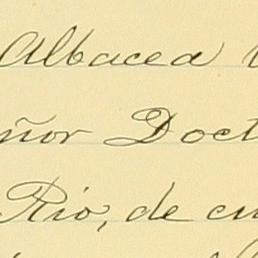 Albacea
ñor Doct
Rio, de cu